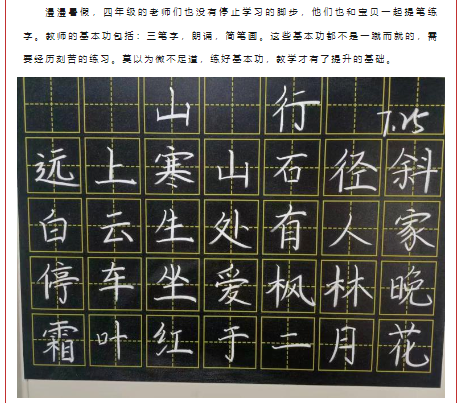 漫漫暑假，四年级的老师们也没有停止学习的脚步，他们也和宝贝一起提笔练
字。教师的基本功包括：三笔字，朗诵，简笔画。这些基本功都不是一蹴而就的，需
要经历刻苦的练习。莫以为微不足道，练好基本功，教学才有了提升的基础。
山行
7.25
远上寒山石径斜
白云生处有人家
停车坐爱枫林晚
霜叶红于二月花